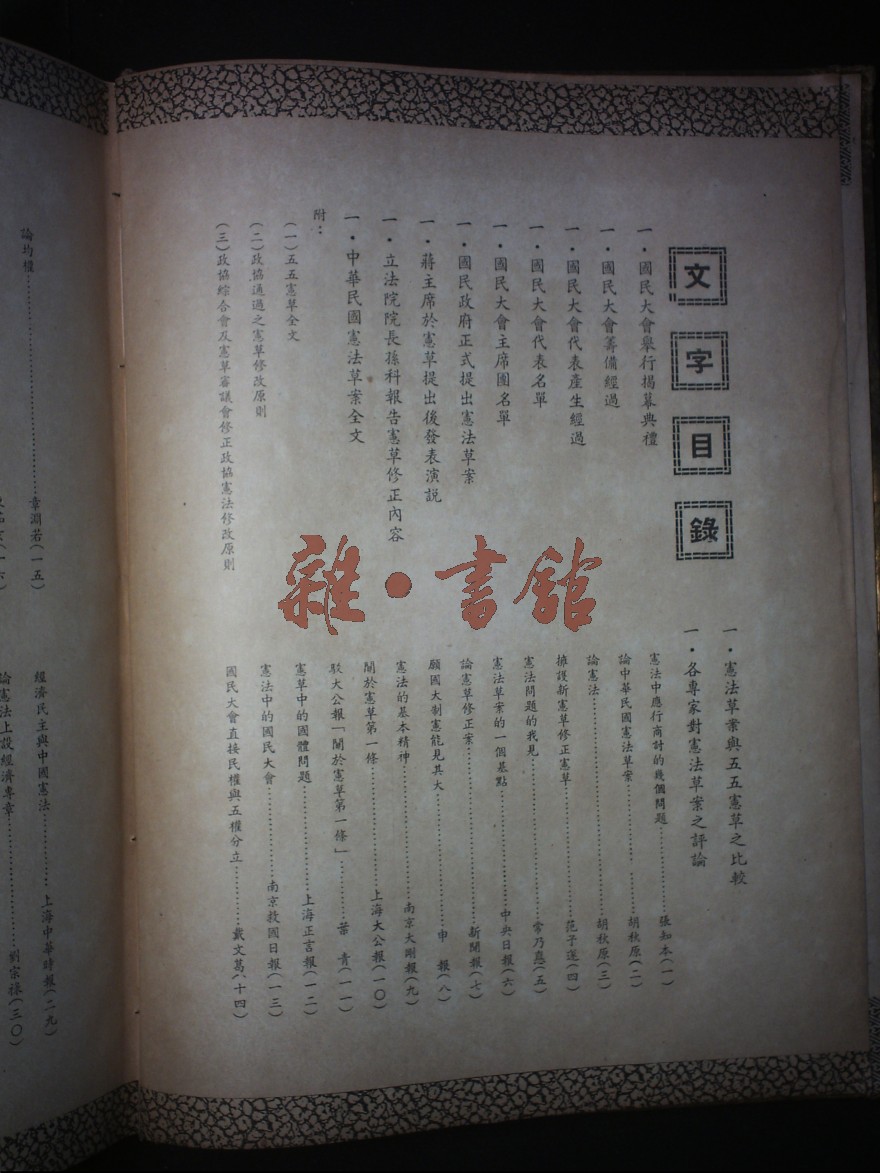 文字目錄
一·國民大會舉行揭幕典禮
一·國民大會籌備經過
一·國民大會代表產生經過
一·國民大會代表名單
一·國民大會主席團名單
一·國民政府正式提出憲法草案
一·蔣主席於憲草提出後發表演說
一·立法院院長孫科報告憲草修正內容
一·中華民國憲法草案全文
附：
(一)五五憲草全文
(二)政協通過之憲草修改原則
(三)政協綜合會及憲草審議會修正政協憲法修改原則
一·憲法草案與五五憲草之比較
一·各專家對憲法草案之評論
憲法中應行商討的幾個問題…………張知本(一)
論中華民國憲法草案…………胡秋原(二)
論憲法…………胡秋原(三)
擁護新憲草修正憲草…………范予遂(四)
憲法問題的我見…………常乃惪(五)
憲法草案的一個基點…………中央日報(六)
論憲草修正案…………新聞報(七)
願國大制憲能見其大…………申 報(八)
憲法的基本精神…………南京大剛報(九)
關於憲草第一條…………上海大公報(一〇)
駁大公報「關於憲草第一條」…………葉 青(一一)
憲草中的國體問題…………上海正言報(一二)
憲法中的國民大會…………南京救國日報(一三)
國民大會直接民權與五權分立…………戴文葛(十四)
論均權…………章淵若(一五)
經濟民主與中國憲法…………上海中華時報(二九)
論憲法上設經濟專章…………劉宗祿(三〇)
雜·書館